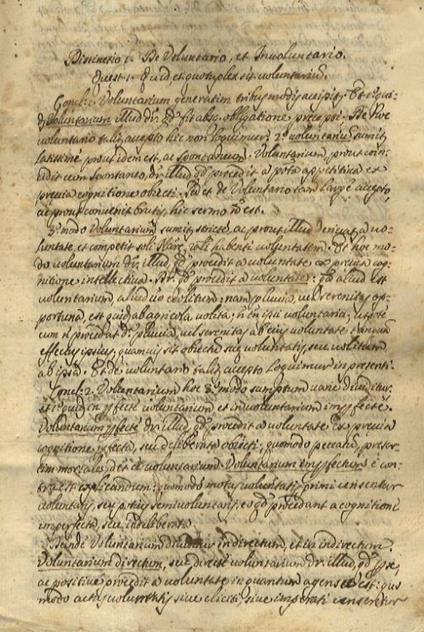 Distinctio 1. De Voluntario, et Involuntario.
Quest. 1. Quid et quotuplex sit voluntarium.
Concl. 1. Voluntarium generatim tribus modis accipitur. Et
voluntarium illud dr. qd fit absq. obligatione precepti. De
voluntario accepto hic non loquimur. 2º voluntarium sumitur
latissime prout idem est, ac spontaneum. Voluntarium, prout coin-
cidit cum spontaneo, dr. illud qd procedit a appetitiva et
previa cognitione obiecti. Sed et de Voluntario tam large accepto,
ac prout convenit brutis, hic sermo est.
3º modo Voluntarium sumitur stricte, ac prout illud derivatur a vo-
luntate, et competit soli habenti voluntatem. Et hoc mo-
do voluntarium dr. illud qd procedit a voluntate ex previa cog-
nitione intellectiva. procedit a voluntate: aliud est
voluntarium aliud volitum: nam pluvia, vel serenitas op-
portuna, est quid ab agricola volitum, non ipsi voluntarium, utpote
cum non procedat pluvia, vel serenitas ab eius voluntate tanquam
effectus ipsius, quamvis sit obiectum sue voluntatis, seu volitum
ab ipsa. Et de voluntario accepto loquimur in presenti.
Concl. 2. Voluntarium hoc 3º modo sumptum varie dividitur.
et in perfecte voluntarium et in voluntarium imperfecte.
Voluntarium perfecte dr. illud, qd procedit a voluntate ex previa
cognitione perfecta, seu deliberata obiecti; quomodo peccata, preser-
tim mortalia, voluntaria. Voluntarium imperfectum e con-
tra est explicandum: quomodo motus voluntatis primi censentur
voluntarii, seu potius semivoluntarii, eo qd procedant a cognitione
imperfecta, seu indeliberata.
Deinde Voluntarium dividitur in directum, et in indirectum.
Voluntarium directum, seu directe voluntarium dr. illud qd per se,
ac positive procedit a voluntate in quantum agens est: quo
modo actus voluntatis sive eliciti, sive imperati censentur